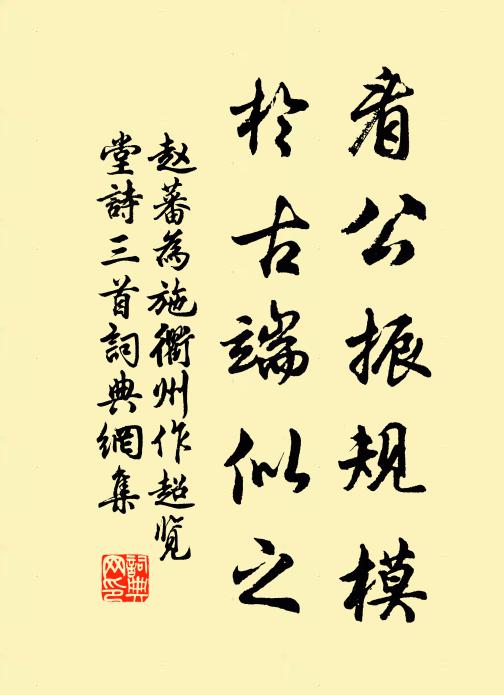 看公振规模
於古端似之
赵蕃為施衢州作超览
堂詩三首詞典網集
詞典网印